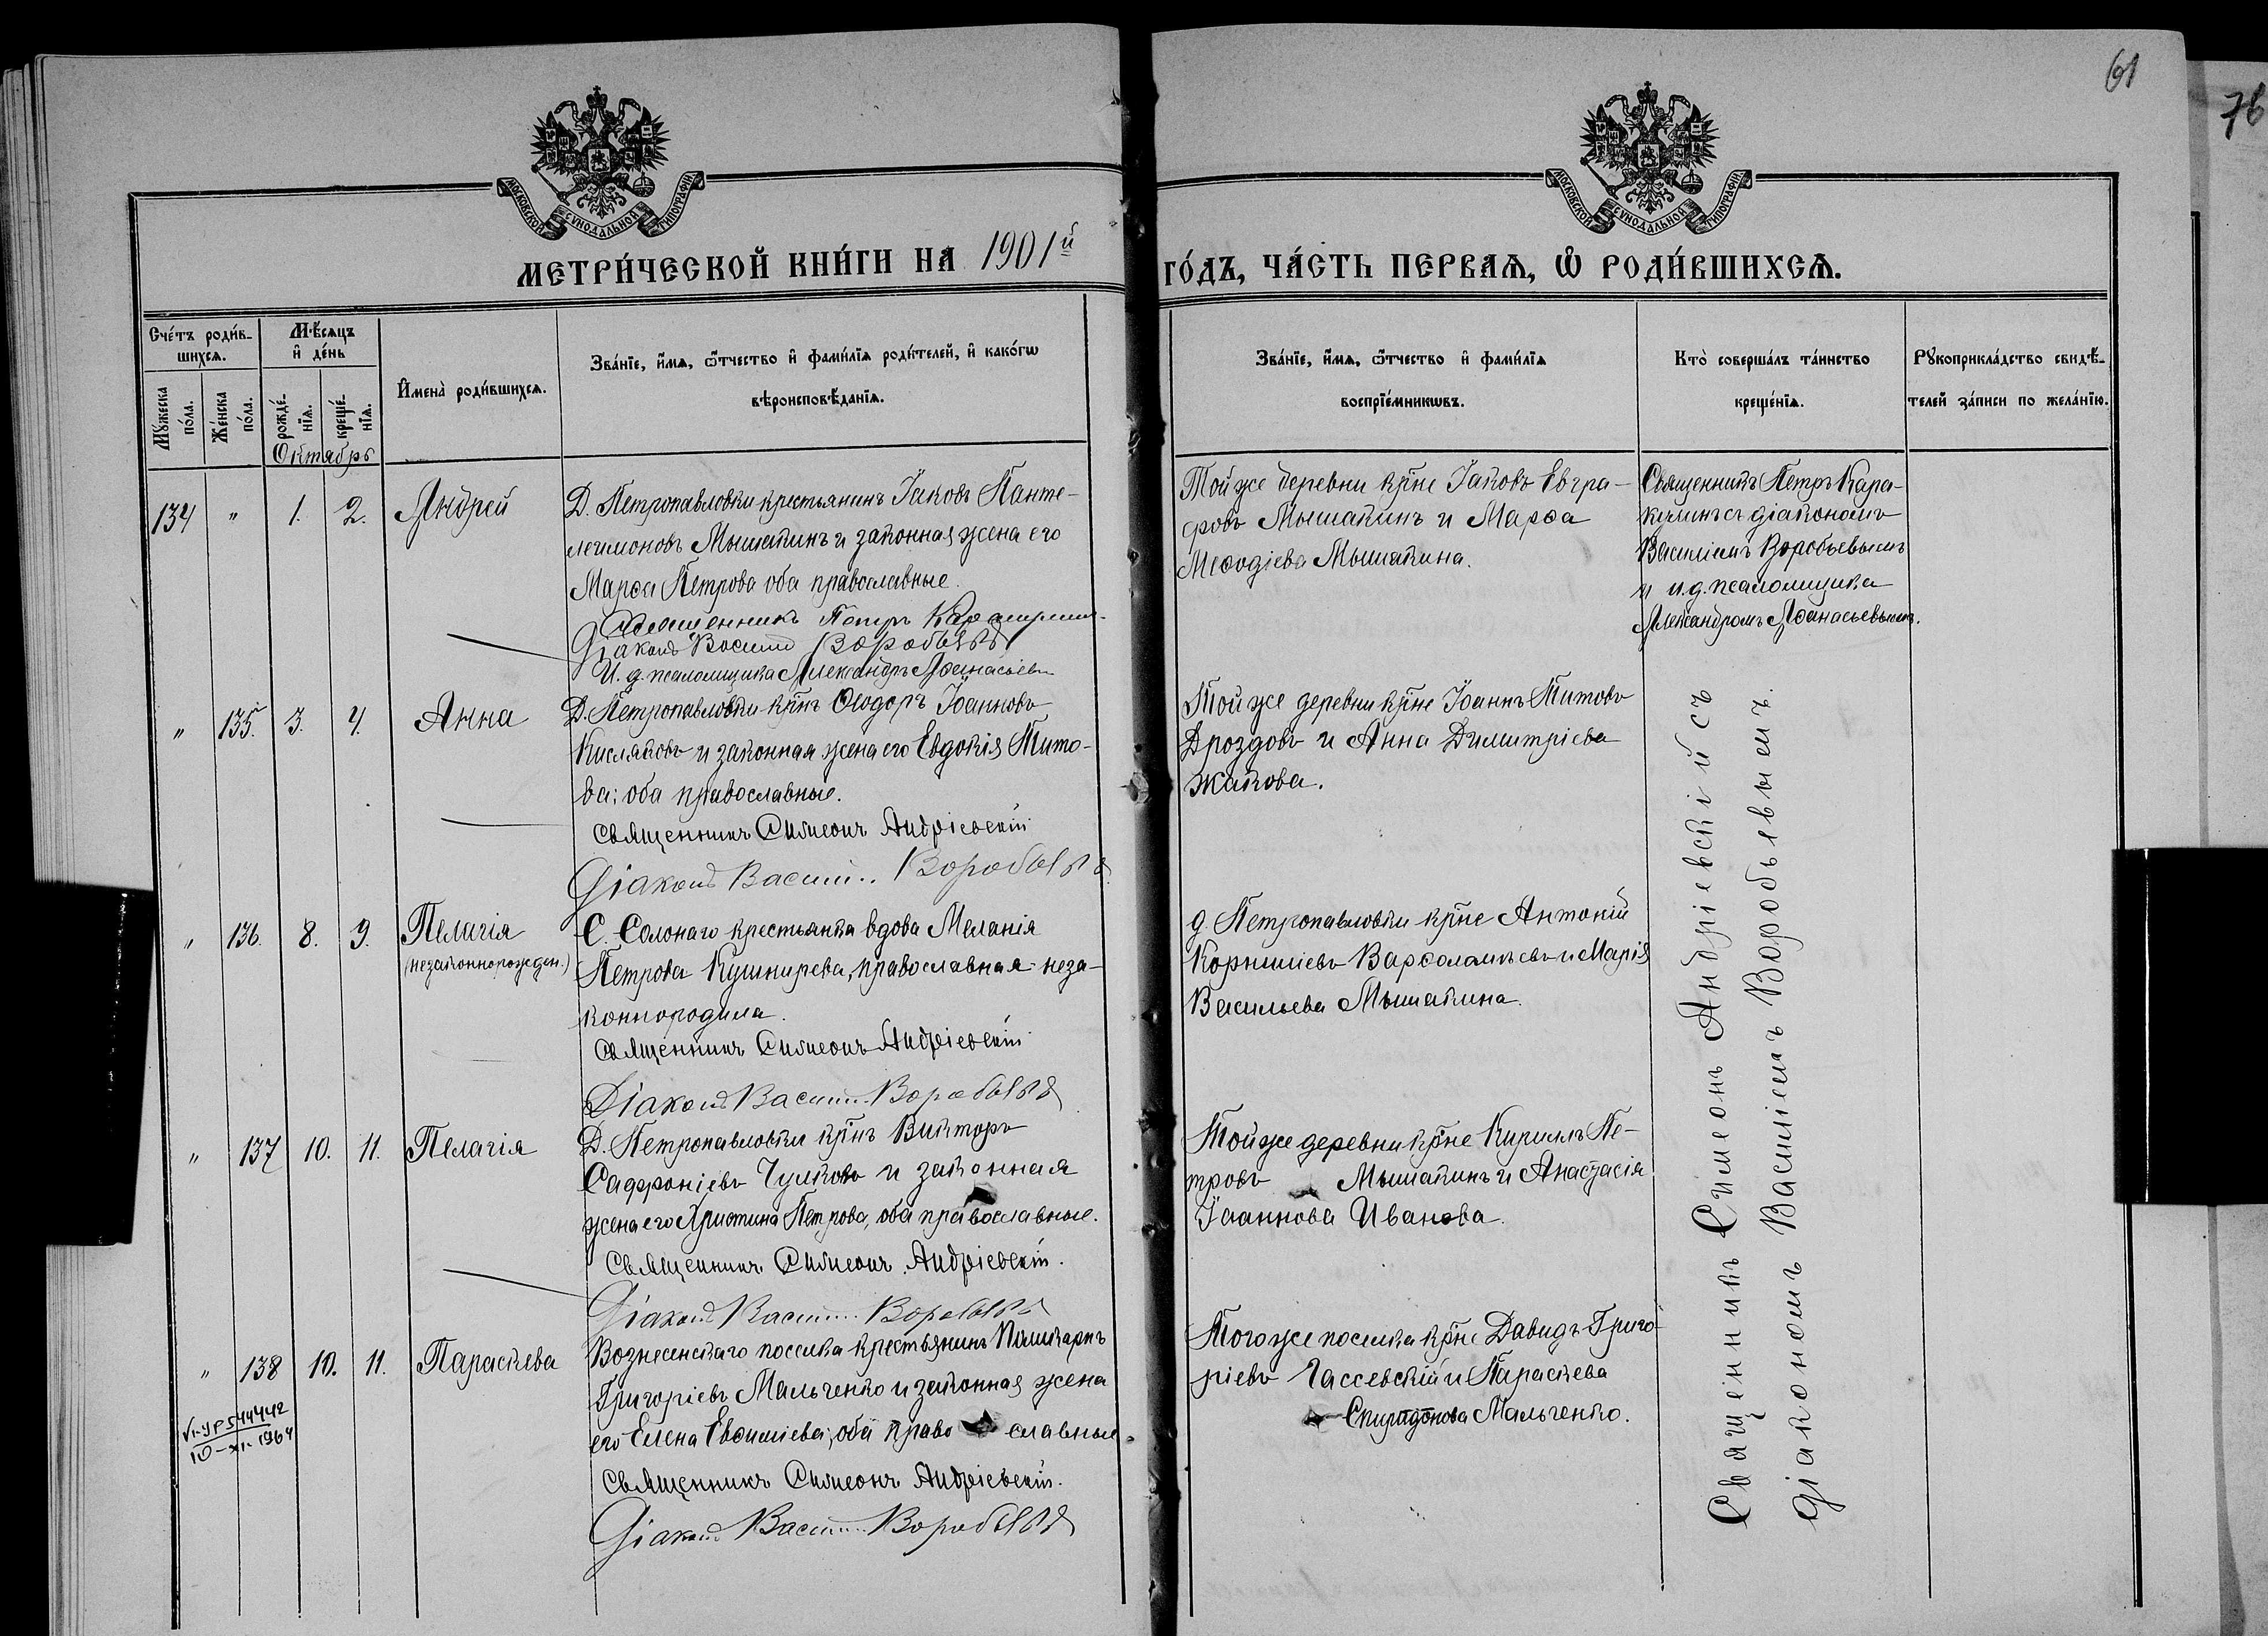 61
76
МОСКОВСКОЙ СУНОДАЛЬНОЙ ТИПОГРАФІИ
МОСКОВСКОЙ СУНОДАЛЬНОЙ ТИПОГРАФІИ
МЕТРИ́ЧЕСКОЙ КНИ́ГИ НА 1901й
ГО́ДЪ, ЧА́СТЬ ПЕРВАѦ, Ѡ РОДИ́ВШИХСѦ.
Сче́тъ роди́в-
шихсѧ.
Мꙋжеска
по́ла.
Же́нска
по́ла.
Мѣ́сяцъ
и҆ де́нь
рожде́-
нїѧ.
креще́-
нїѧ.
Октябрь
И҆мена̀ роди́вшихсѧ.
Зва́нїе, и҆́мѧ, ѻ҆́тчество и҆ фами́лїѧ роди́телей, и҆ како́гѡ
вѣроисповѣ́данїѧ.
Зва́нїе, и҆́мѧ, ѻ҆́тчество и҆ фами́лїѧ
воспрїе́мникѡвъ.
Кто̀ соверша́лъ та́инство
креще́нїѧ.
Рꙋкоприкла́дство свидѣ́-
телей за́писи по жела́нїю.
134 " 1. 2. Андрей
Д. Петропавловки крестьянинъ Іаковъ Панте-
леимоновъ Мышакинъ и законная жена его
Марѳа Петрова оба православные.
Священникъ Петръ
Діаконъ Василій Воробьевъ
И. д. псаломщика Александръ Аѳанасьевъ
Той же деревни кр̃не Іаковъ Евгра-
фовъ Мышакинъ и Марѳа
Меѳодіева Мышакина.
Священникъ Петръ Кара-
діакономъ
Василіемъ Воробьевымъ
и и. д. псаломщика
Александромъ Аѳанасьевымъ.
" 135. 3. 4. Анна
Д. Петропавловки кр̃нъ Ѳеодоръ Іоанновъ
Кисляковъ и законная жена его Евдокія Тито-
ва; оба православные.
Священникъ Симеонъ Андріевскій
Діаконъ Василій Воробьевъ
Той же деревни кр̃не Іоаннъ Титовъ
Дроздовъ и Анна Димитріева
Жакова.
" 136. 8. 9. Пелагія
(незаконнорожден.)
С. Солонаго крестьянка вдова Меланія
Петрова Кушнирева, православная неза-
коннородила.
Священникъ Симеонъ Андріевскій
Діаконъ Василій Воробьевъ
д. Петропавловки кр̃не Антоній
Корниліевъ Варѳоломеевъ и Марія
Васильева Мышакина.
" 137 10. 11. Пелагія
Д. Петропавловки кр̃нъ Викторъ
Сафроніевъ Чулковъ и законная
жена его Христина Петрова, оба православные.
Священникъ Симеонъ Андріевскій.
Діаконъ Василій Воробьевъ
Той же деревни кр̃не Кириллъ Пе-
тровъ Мышакинъ и Анастасія
Іоаннова Иванова.
" 138 10. 11. Параскева
VI-УР 544442
10-XI-1964
Вознесенскаго поселка крестьянинъ Поликарпъ
Григоріевъ Мальченко и законная жена
его Елена Евѳиміева; оба право славные
Священникъ Симеонъ Андріевскій.
Діаконъ Василій Воробьевъ
Того же поселка кр̃не Давидъ Григо-
ріевъ Гассевскій и Параскева
Спиридонова Мальченко.
Священникъ Симеонъ Андріевскій съ
діакономъ Василіемъ Воробьевымъ.